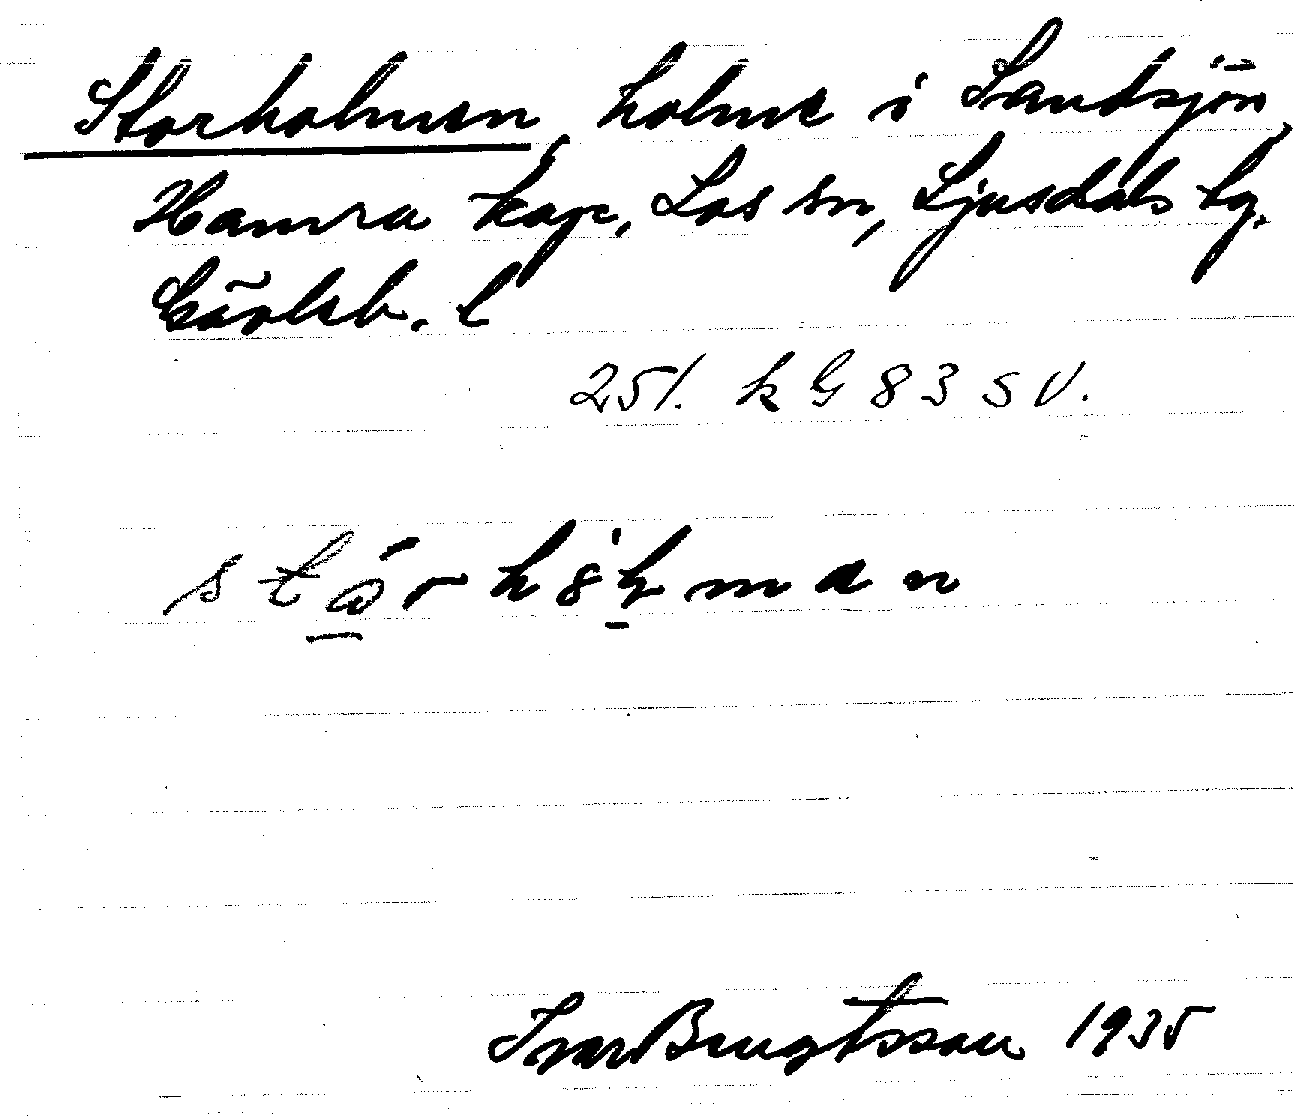 Storholmen, holme i Sandsjön,
Hamra kap, Los sn, Ljusdals tg.
Gävleb. l
251. k G 83 SV.
Ivar Bengtsson 1935